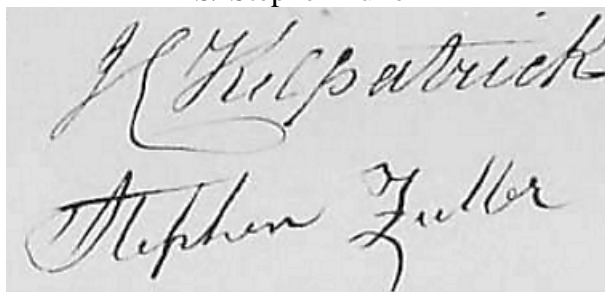 J C Kilpatrick
Stephen Fuller